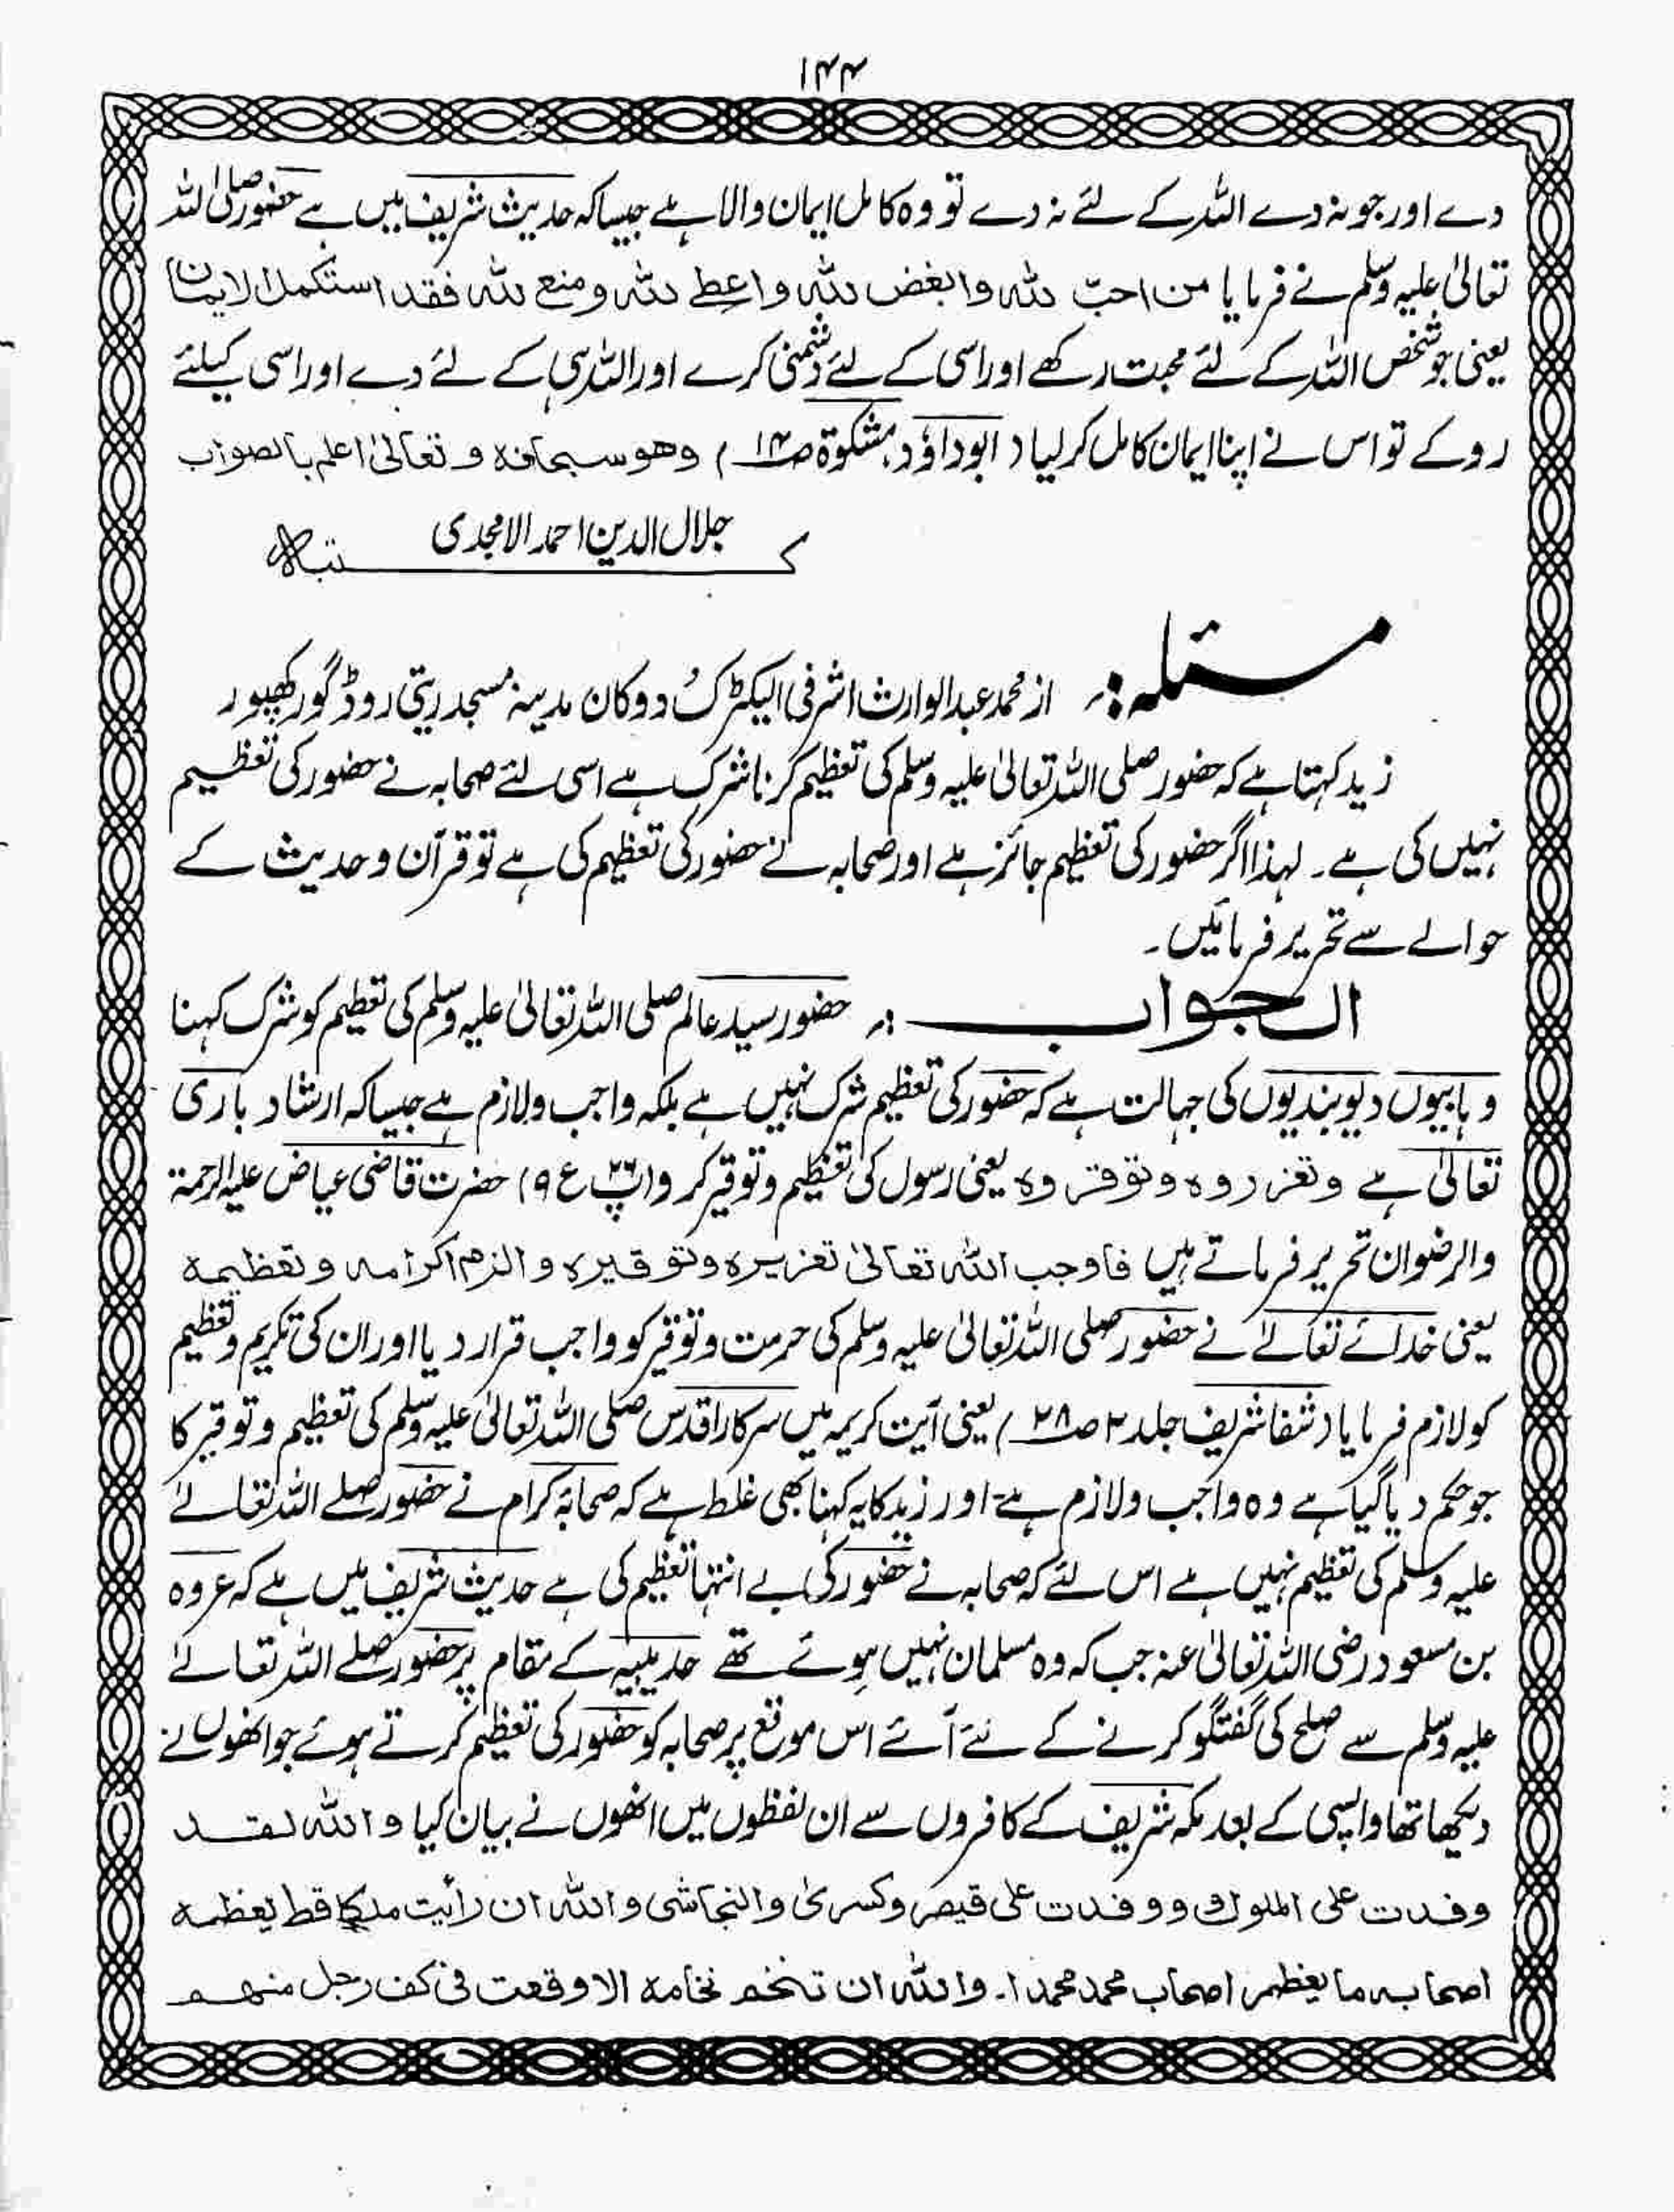 ۱۴۴
دے اور جو نہ دے اللہ کے لئے نہ دے تو وہ کامل ایمان والا ہے جیسا کہ حدیث شریف میں ہے حضور صلی اللہ
تعالیٰ علیہ وسلم نے فرمایا من احبّ للہ وابغض للہ واعطٰے للہ ومنع للہ فقد استکمل الایمان
یعنی جو شخص اللہ کے لئے محبت رکھے اور اسی کے لئے دشمنی کرے اور اللہ ہی کے لئے دے اور اسی کیلئے
روکے تو اس نے اپنا ایمان کامل کر لیا (ابو داؤد، مشکوٰۃ ص۱۴) وھو سبحانہ و تعالیٰ اعلم بالصواب
کتبہ جلال الدین احمد الامجدی
مسئلہ:۔ از محمد عبد الوارث اشرفی الیکٹرک دوکان مدینہ مسجد ریتی روڈ گورکھپور
زید کہتا ہے کہ حضور صلی اللہ تعالیٰ علیہ وسلم کی تعظیم کرنا شرک ہے اسی لئے صحابہ نے حضور کی تعظیم
نہیں کی ہے۔ لہذا اگر حضور کی تعظیم جائز ہے اور صحابہ نے حضور کی تعظیم کی ہے تو قرآن و حدیث کے
حوالے سے تحریر فرمائیں۔
الجواب :۔ حضور سید عالم صلی اللہ تعالیٰ علیہ وسلم کی تعظیم کو شرک کہنا
وہابیوں دیوبندیوں کی جہالت ہے کہ حضور کی تعظیم شرک نہیں ہے بلکہ واجب ولازم ہے جیسا کہ ارشاد باری
تعالیٰ ہے وتعزروہ وتوقروہ یعنی رسول کی تعظیم و توقیر کرو (پ۲۶ ع ۹) حضرت قاضی عیاض علیہ الرحمۃ
والرضوان تحریر فرماتے ہیں فاوجب اللہ تعالیٰ تعزیرہ وتوقیرہ والزم اکرامہ وتعظیمہ
یعنی خدائے تعالےٰ نے حضور صلی اللہ تعالیٰ علیہ وسلم کی حرمت و توقیر کو واجب قرار دیا اور ان کی تکریم و تعظیم
کو لازم فرمایا (شفا شریف جلد ۲ ص۲۸) یعنی آیت کریمہ میں سرکار اقدس صلی اللہ تعالیٰ علیہ وسلم کی تعظیم و توقیر کا
جو حکم دیا گیا ہے وہ واجب ولازم ہے اور زید کا یہ کہنا بھی غلط ہے کہ صحابۂ کرام نے حضور صلے اللہ تعالےٰ
علیہ وسلم کی تعظیم نہیں ہے اس لئے کہ صحابہ نے حضور کی بے انتہا تعظیم کی ہے حدیث شریف میں ہے کہ عروہ
بن مسعود رضی اللہ تعالیٰ عنہ جب کہ وہ مسلمان نہیں ہوئے تھے حدیبیہ کے مقام پر حضور صلے اللہ تعالےٰ
علیہ وسلم سے صلح کی گفتگو کرنے کے لئے آئے اس موقع پر صحابہ کو حضور کی تعظیم کرتے ہوئے جو انھوں نے
دیکھا تھا واپسی کے بعد مکہ شریف کے کافروں سے ان لفظوں میں انھوں نے بیان کیا واللہ لقد
وفدت علی الملوک ووفدت علی قیصر وکسریٰ والنجاشی واللہ ان رأیت ملکا قط یعظمہ
اصحابہ ما یعظم اصحاب محمد محمدا۔ واللہ ان تنخم نخامۃ الا وقعت فی کف رجل منھم